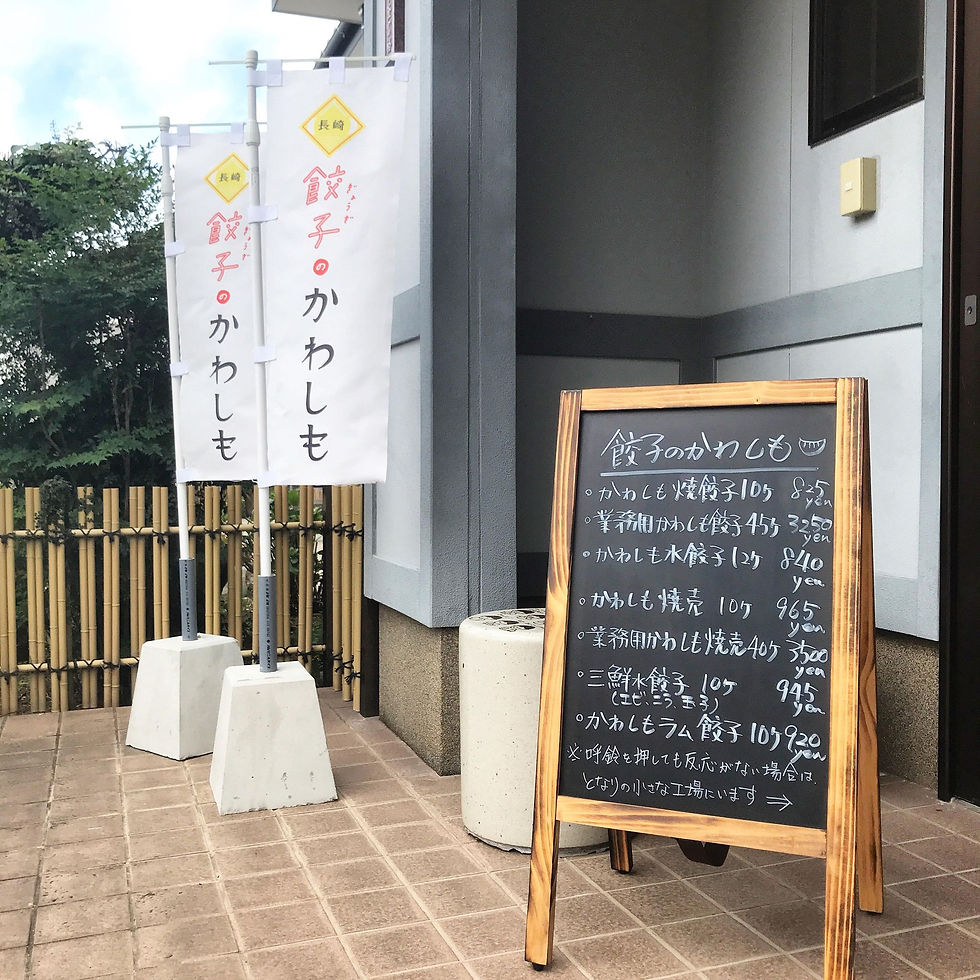 長崎
餃子のかわしも
ぎょうざ
長崎
餃子のかわしも
ぎょうざ
餃子のかわしも
◦かわしも焼餃子10ケ 825yen
◦業務用かわしも餃子45ケ 3250yen
◦かわしも水餃子12ケ 840yen
◦かわしも焼売 10ケ 965yen
◦業務用かわしも焼売40ケ 3500yen
◦三鮮水餃子 10ケ 945yen
(エビ、ニラ、玉子)
◦かわしもラム餃子10ケ 920yen
※呼鈴を押しても反応がない場合は、
となりの小さな工場にいます⇒